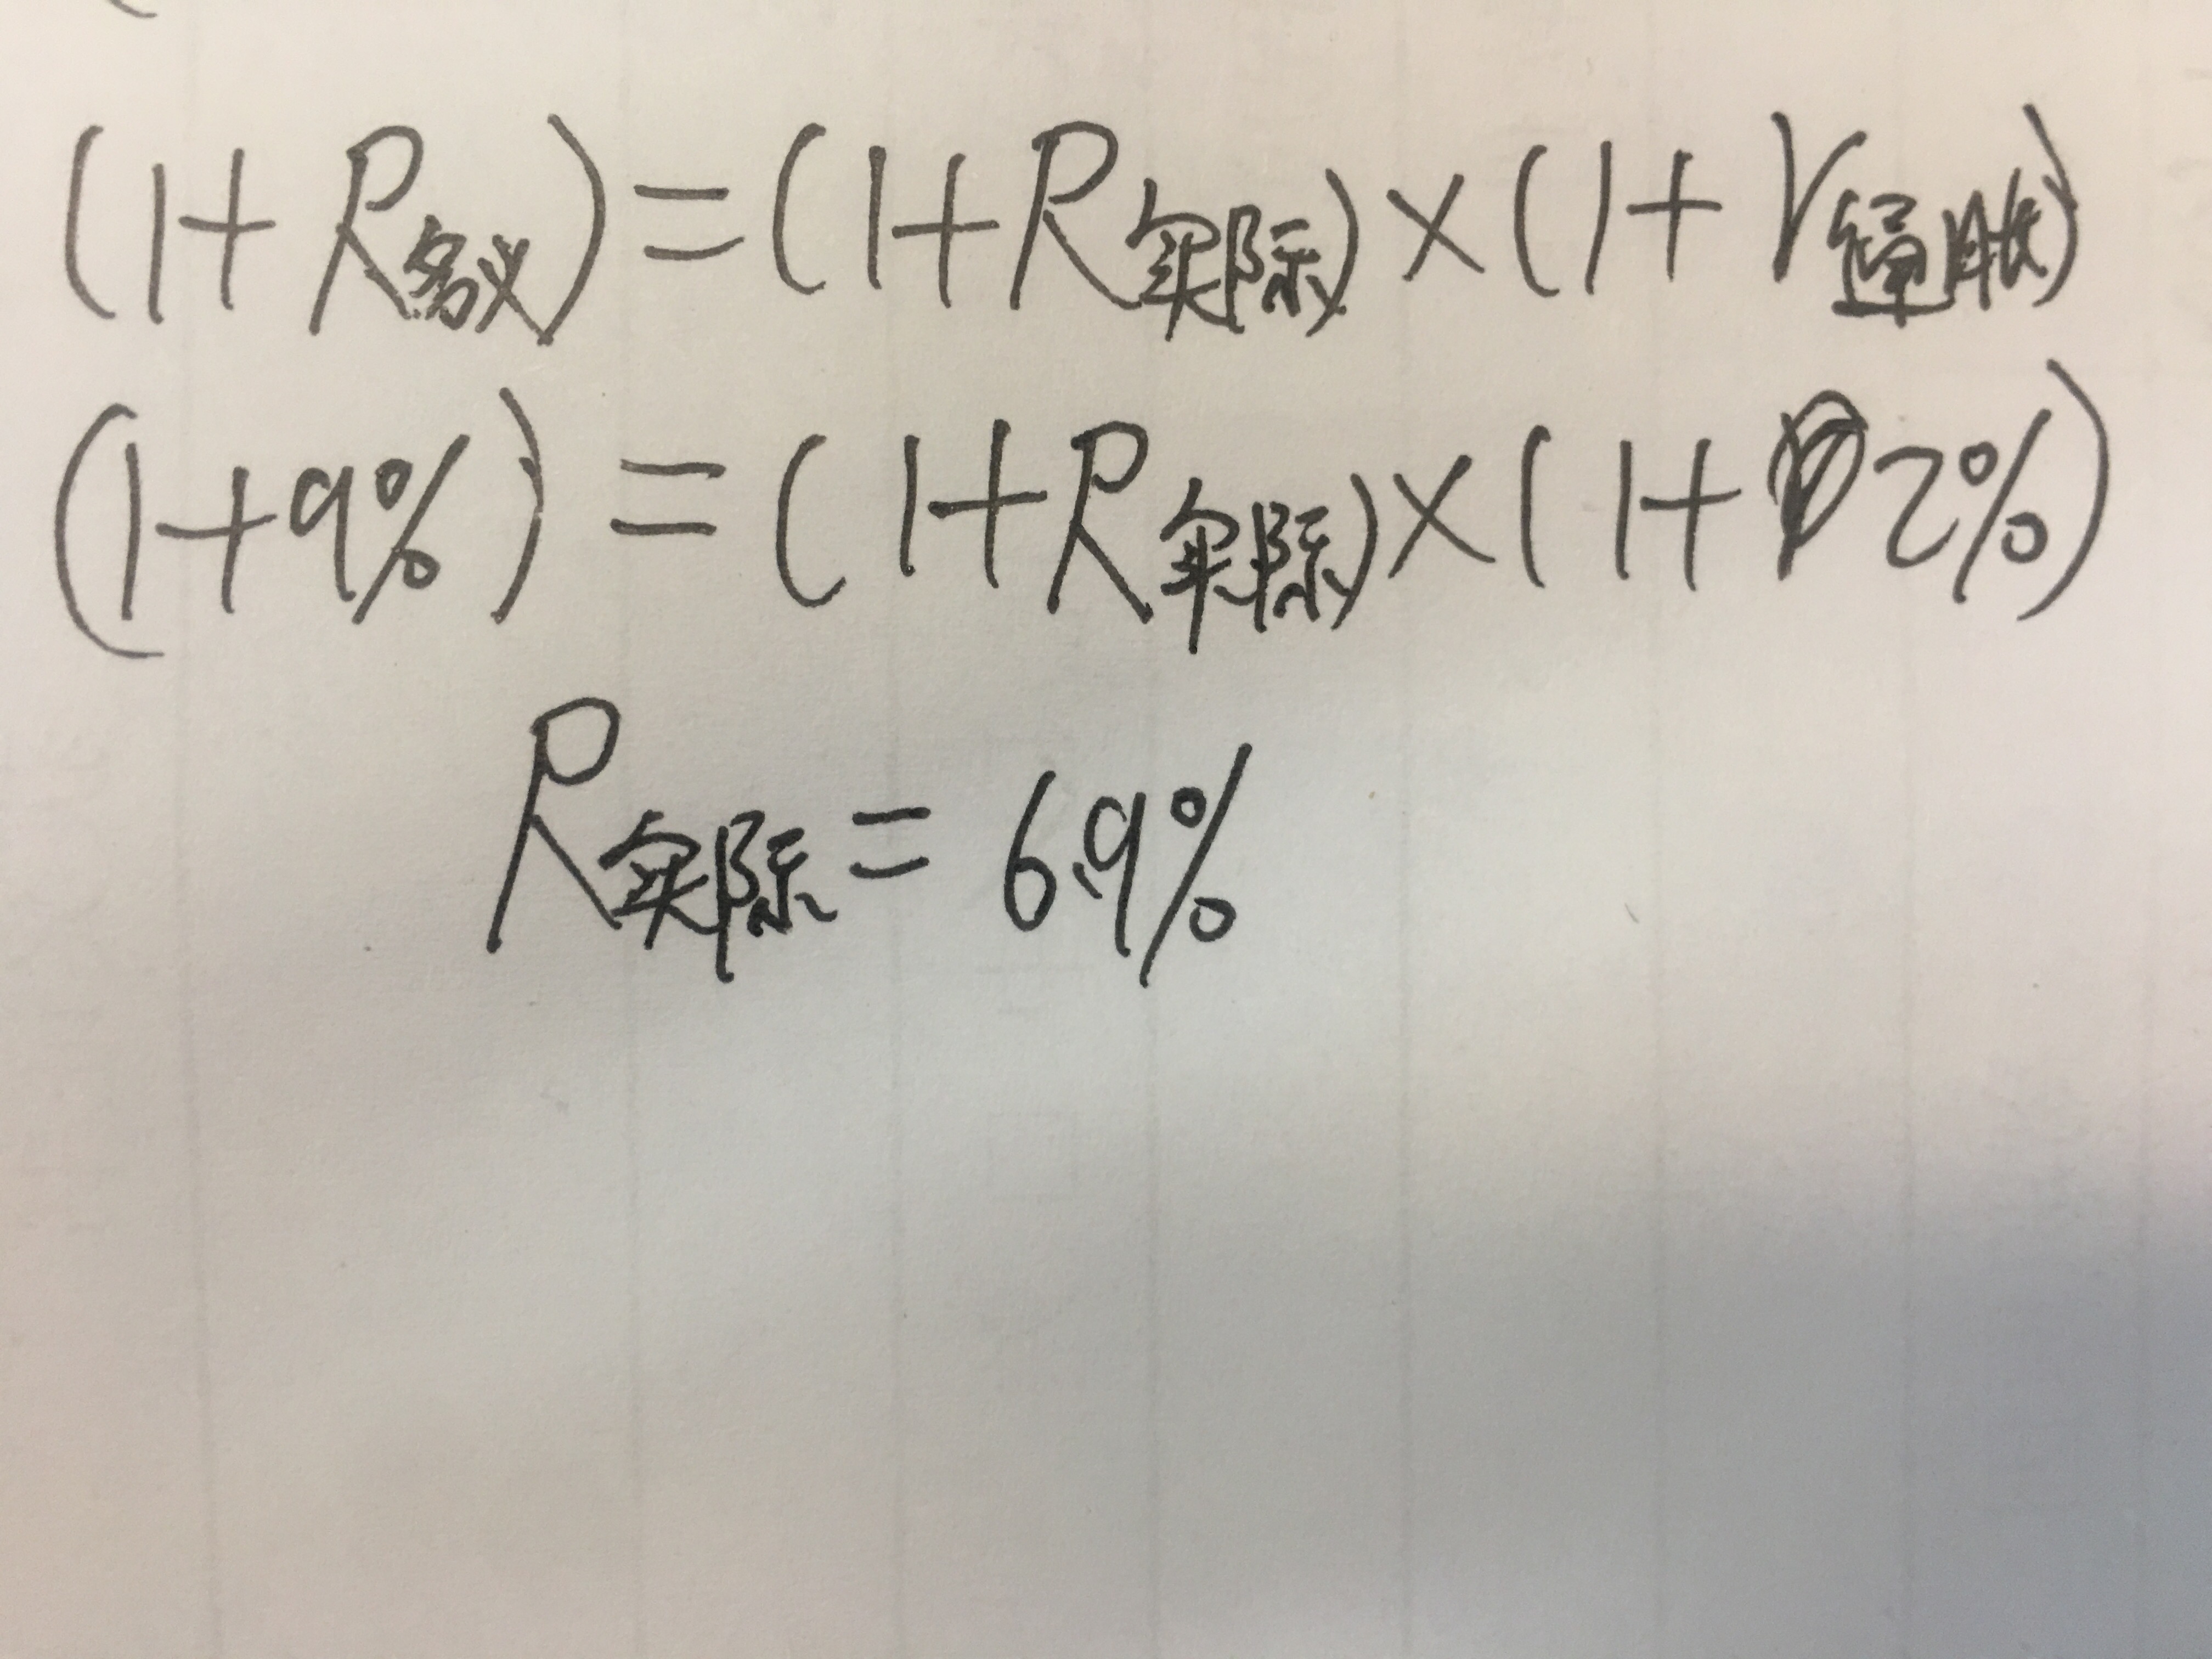 (1+R名义)=(1+R实际)×(1+r通胀)
(1+9%)=(1+R实际)×(1+2%)
R实际=6.9%